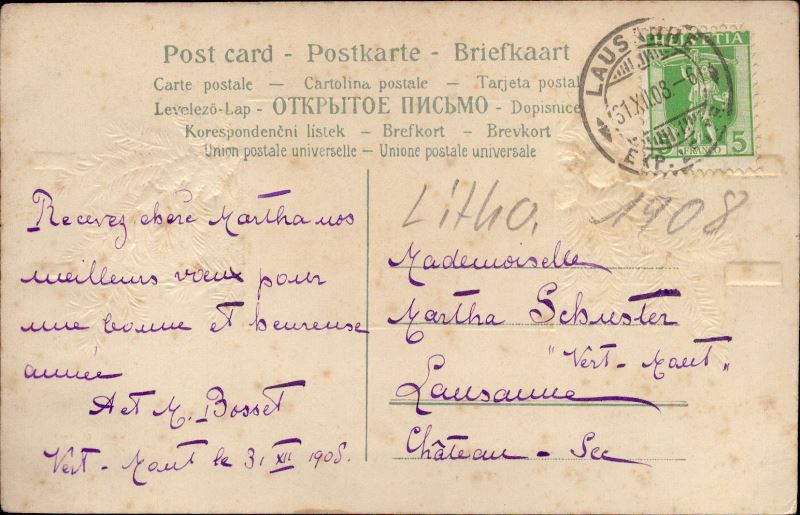 Post card - Postkarte - Briefkaart
Carte postale — Cartolina postale — Tarjeta postal
Levelező-Lap - ОТКРЫТОЕ ПИСЬМО - Dopisnice
Korespondenční listek - Brefkort - Brevkort
Union postale universelle - Unione postale universale
HELVETIA
5
FRANCO
LAUSANNE
31.XII.08
EXP.
Litho. 1908
Recevez chère Martha nos
meilleurs vœux pour
une bonne et heureuse
année
A et M. Bosset
Vert-Mont le 31 XII 1908.
Mademoiselle
Martha Schuster
"Vert-Mont"
Lausanne
Château-Sec